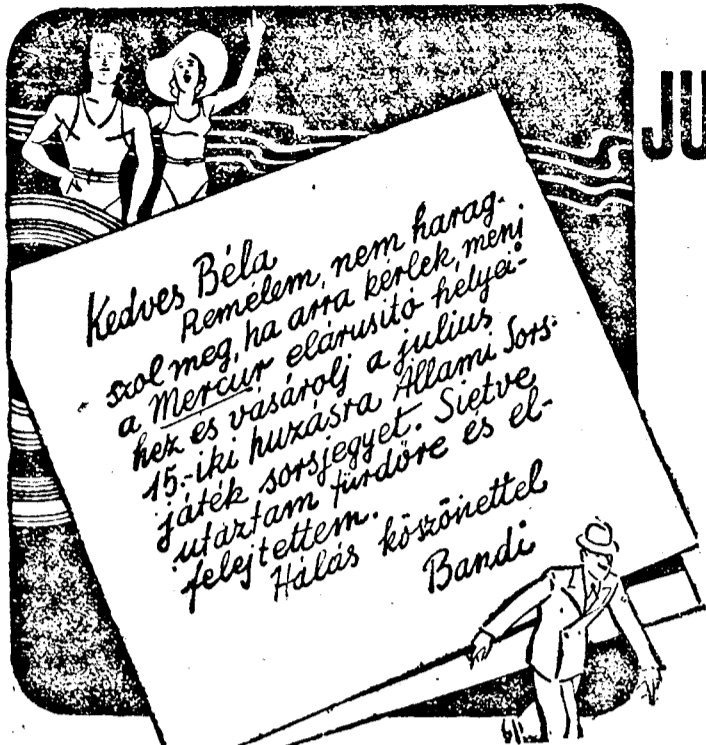 JU
Kedves Béla
Remélem, nem harag-
szol meg, ha arra kérlek, menj
a Mercur elárusító helyei-
hez és vásárolj a julius
15.-iki huzásra Állami Sors-
játék sorsjegyet. Sietve
utaztam fürdőre és el-
felejtettem.
Hálás köszönettel
Bandi